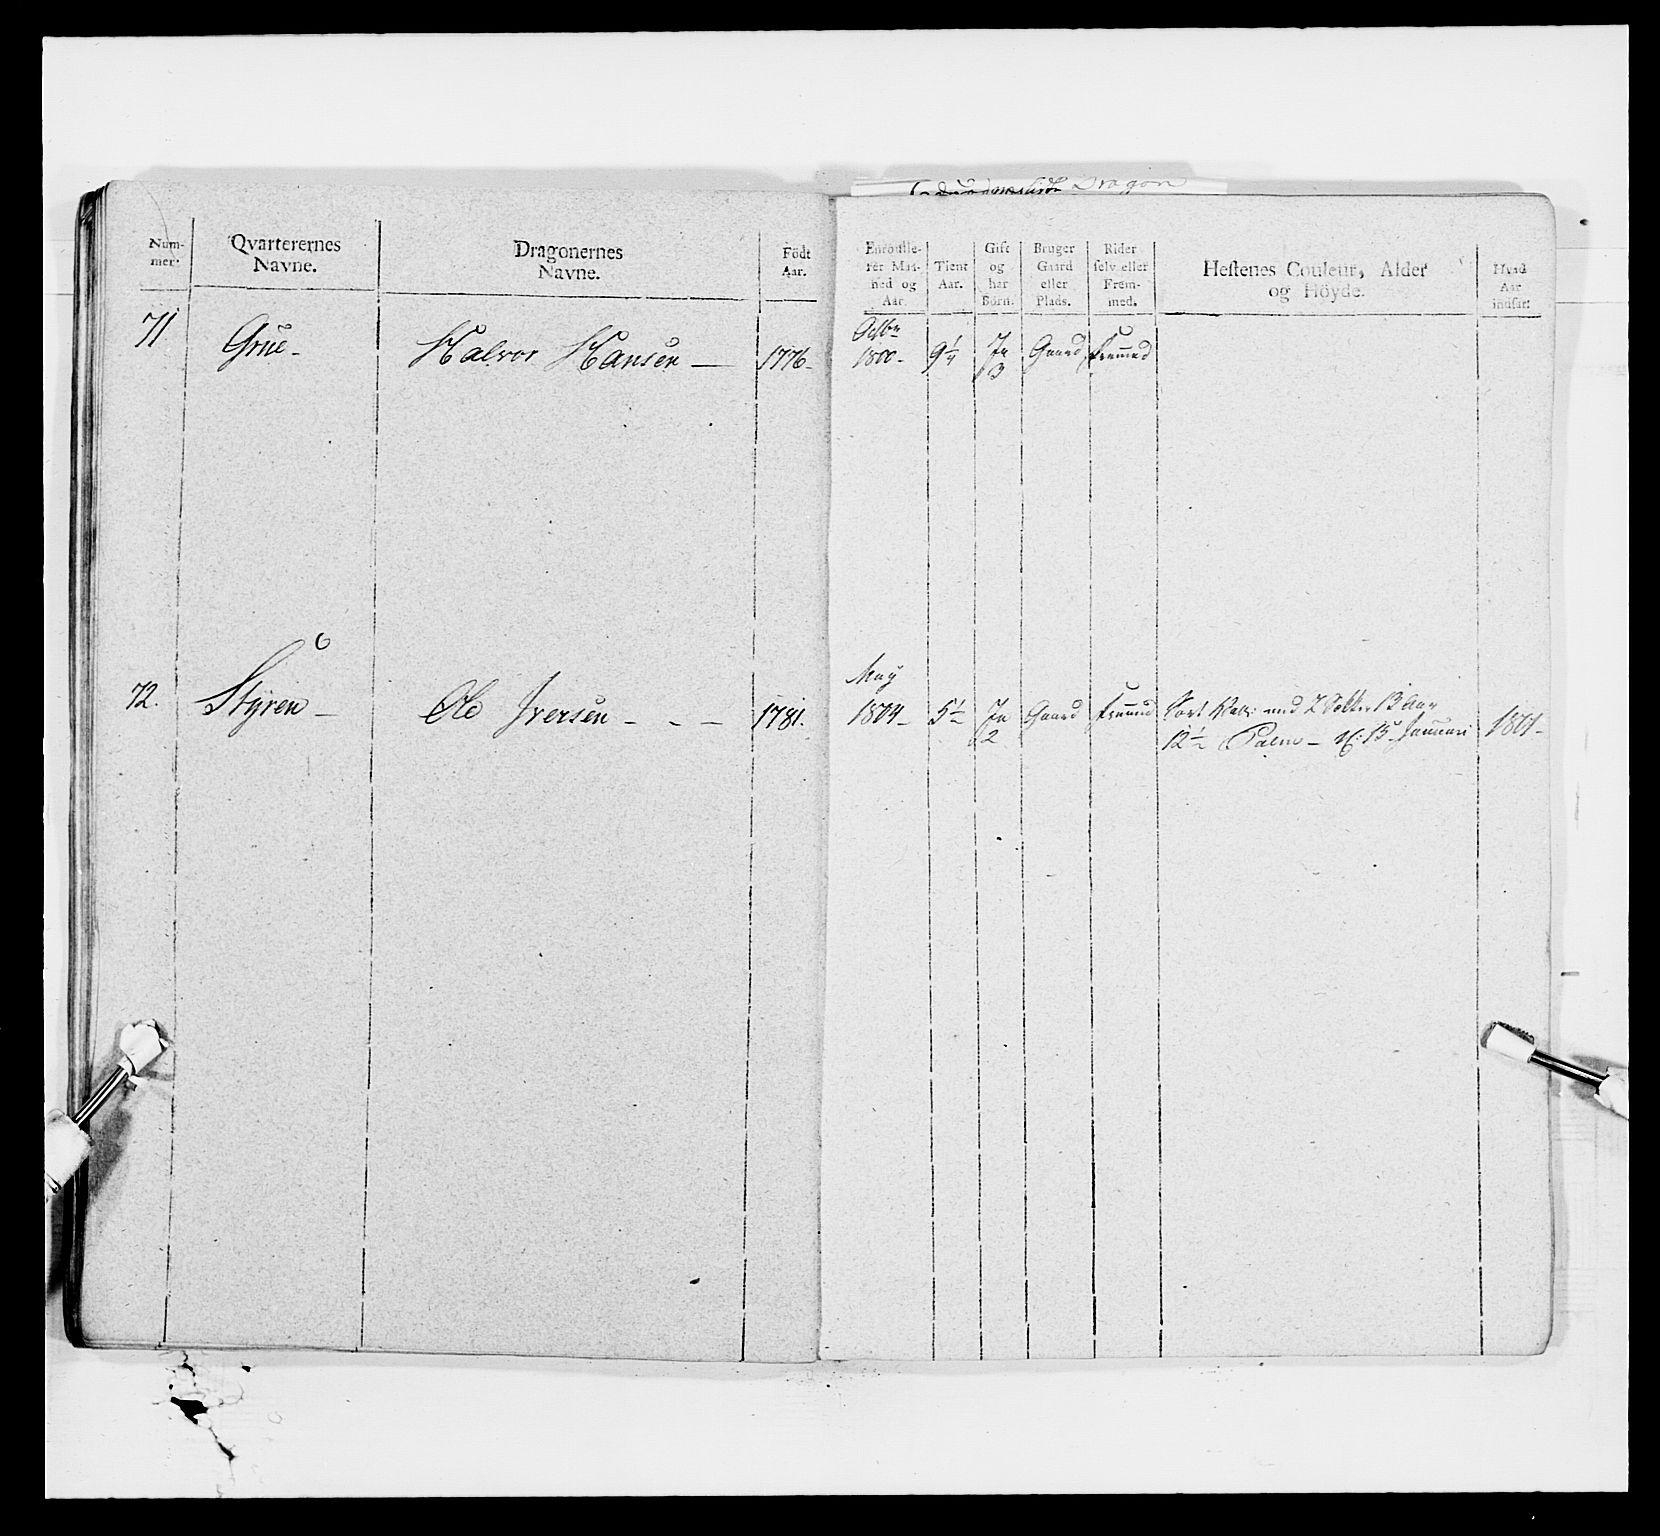 Dragon
Num- Qvarterernes Dragonernes Födt Enroulle- Tient Gift Bruger Rider Hestenes Couleur, Alder Hvad
mer: Navne. Navne. Aar. ret Maa- Aar. og Gaard selv eller og Höyde. Aar
ned og har eller Frem- indsat:
Aar. Börn. Plads. med.
71 Grue - Halvor Hansen — 1776 - Octbr 1800 - 9 1/4 Ja 3 Gaard Fremmed
72. Styren - Ole Iversen - - - 1781. May 1804 - 5 1/2 Ja 2 Gaard Fremmed Sort med 2 13 Aar
12 1/2 Palm - 15 Januari 1801 -